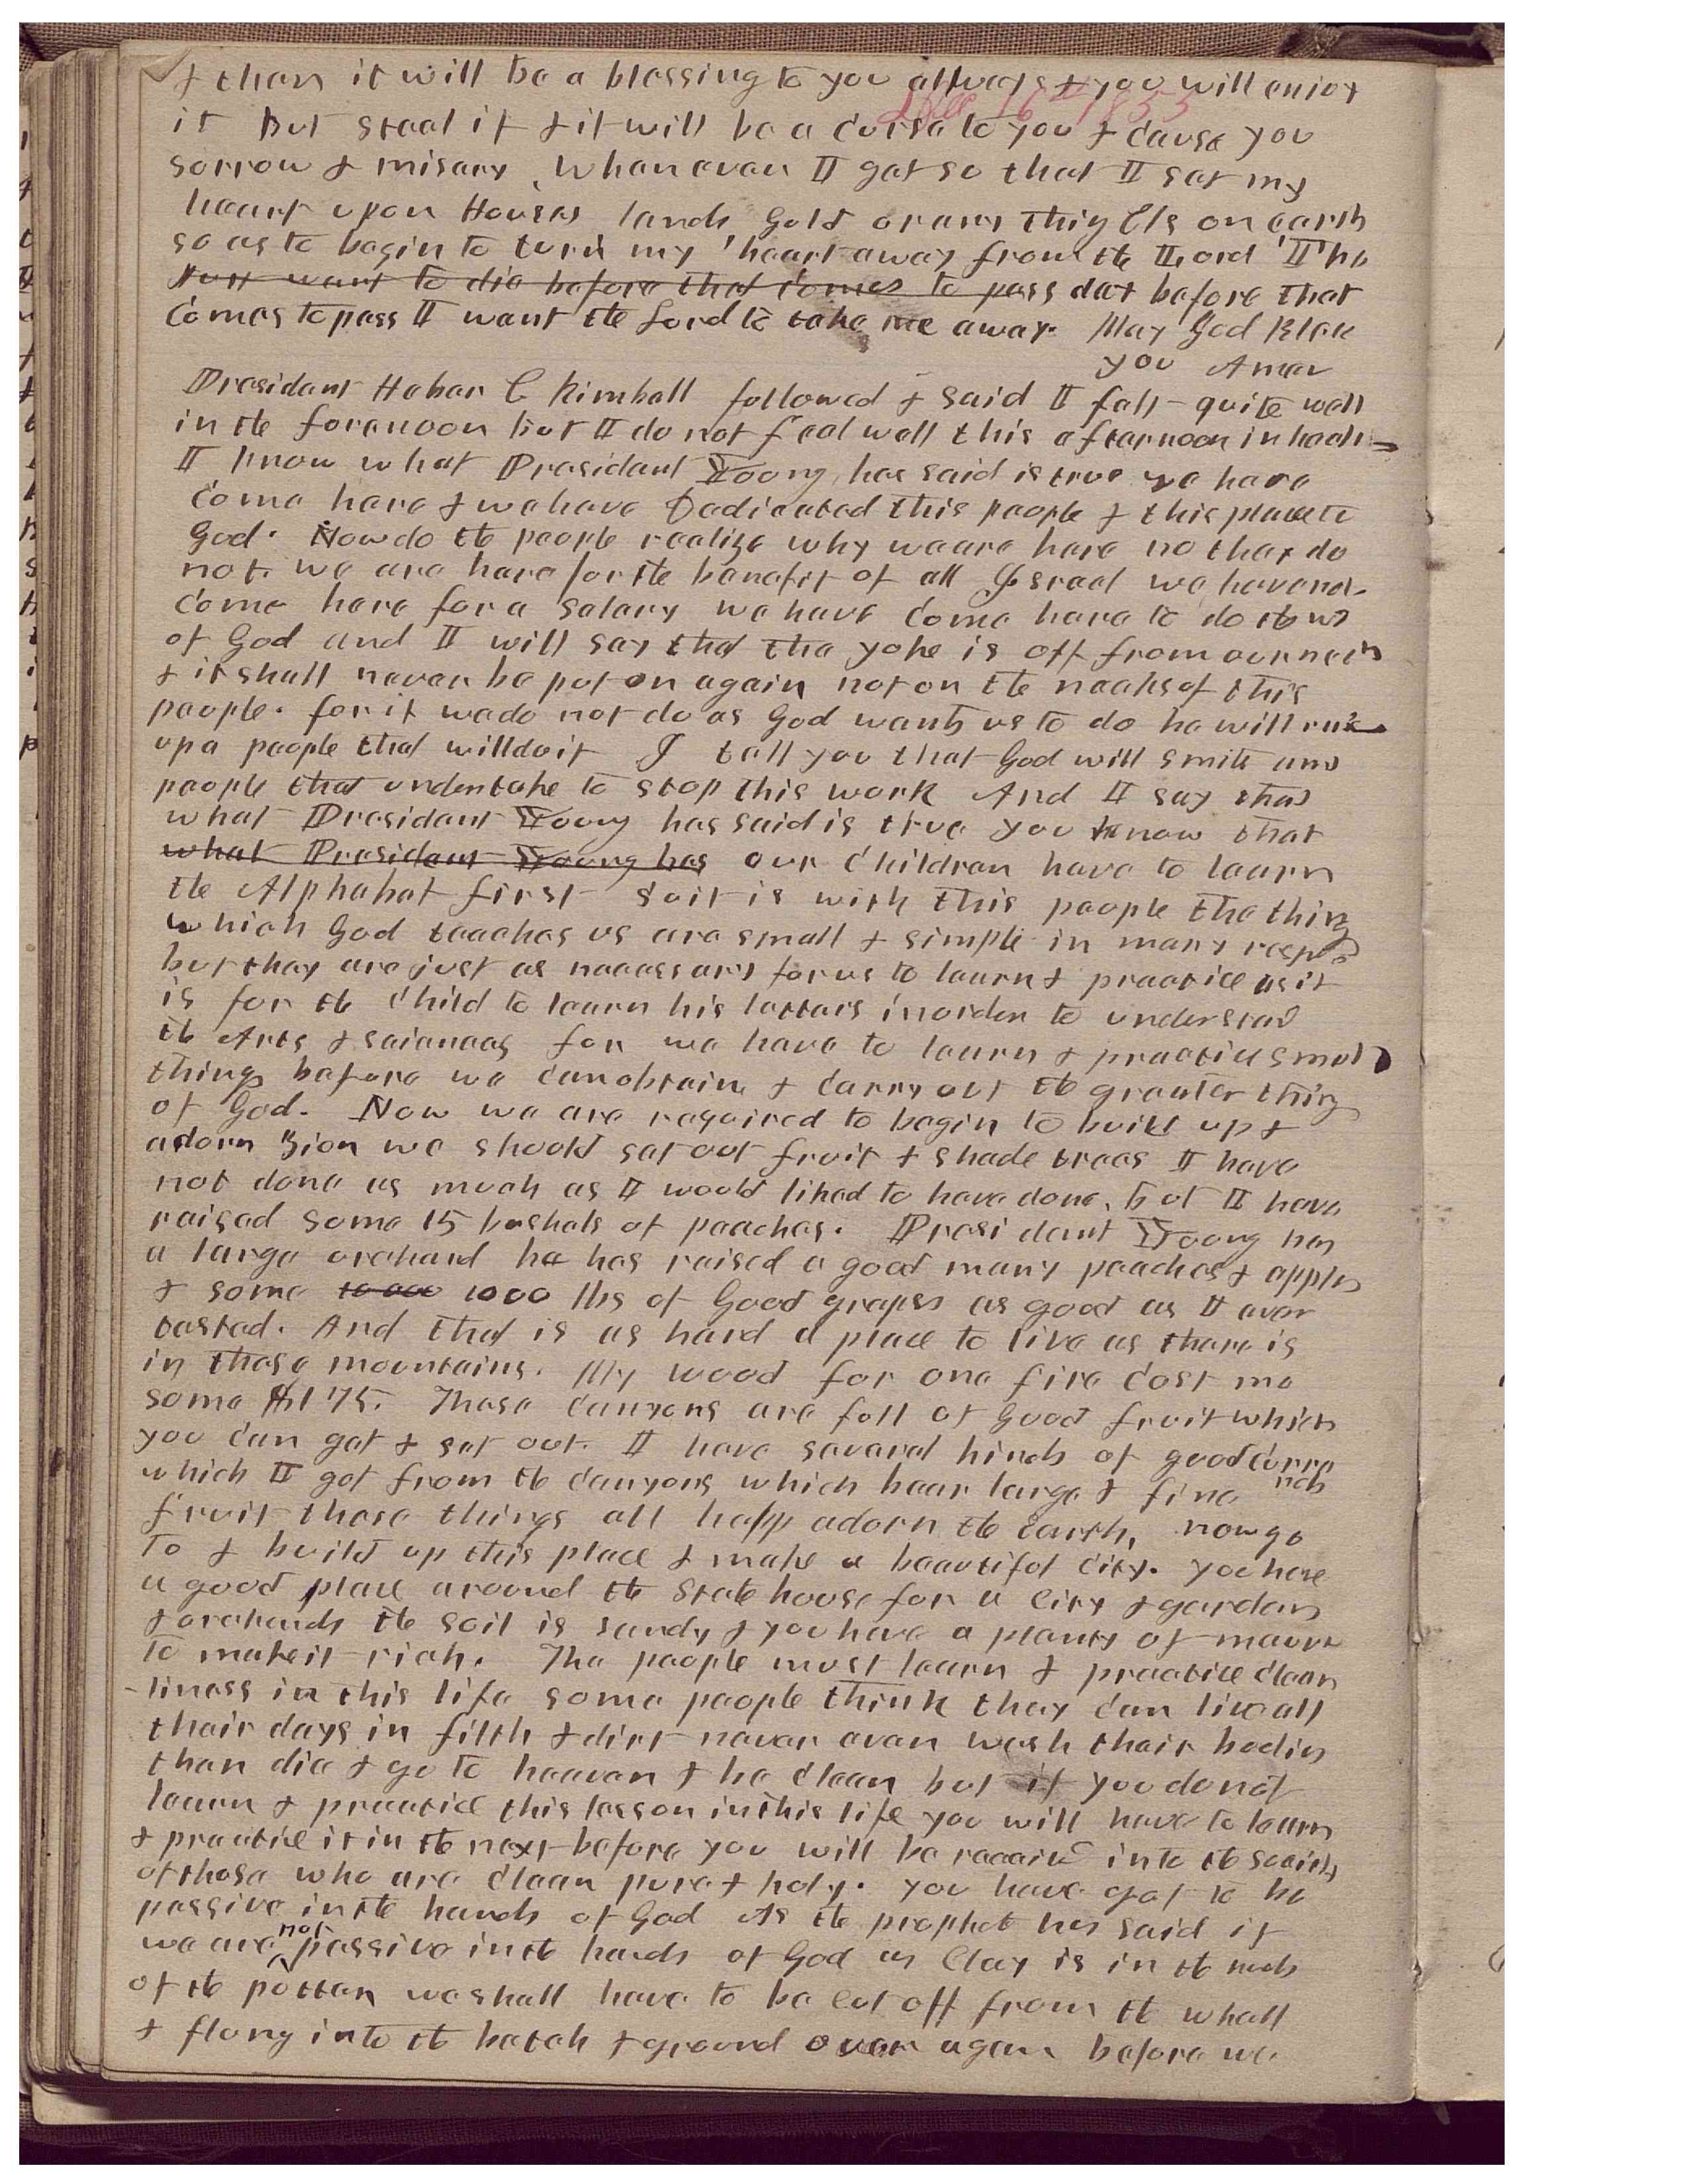 & then it will be a blessing to you allways & you will enjoy
Dec 16th 1855
it But steal it & it will be a curse to you & cause you
sorrow & misery. Whenever I get so that I set my
heart upon Houses lands Gold or any thing Els on earth
so as to begin to turn my heart away from the Lord I ho
want to die before that comes to pass day before that
comes to pass I want the Lord to take me away. May God Bless
you Amen
President Heber C Kimball followed & said I felt quite well
in the forenoon but I do not feel well this afternoon in health
I know what President Young has said is true we have
come here & we have Dedicated this people & this place to
God. Now do the people realize why we are here no they do
not. we are here for the benefit of all Israel we have not
come here for a salary we have come here to do the will
of God and I will say that the yoke is off from our necks
& it shall never be put on again not on the necks of this
people. for if we do not do as God wants us to do he will raise
up a people that will do it I tell you that God will smite any
people that undertake to stop this work And I say that
what President Young has said is true you know that
what President Young has our children have to learn
the Alphabet first so it is with this people the things
which God teaches us are small & simple in many respects
but they are just as necessary for us to learn & practice as it
is for the child to learn his letters in order to understand
the Arts & sciences for we have to learn & practice small
things before we can obtain & carry out the greater things
of God. Now we are required to begin to build up &
adorn Zion we should set out fruit & shade trees I have
not done as much as I would liked to have done, but I have
raised some 15 bushels of peaches. President Young has
a large orchard he has raised a good many peaches & apples
& some 10 000 1000 lbs of Good grapes as good as I ever
tasted. And that is as hard a place to live as there is
in these mountains. My wood for one fire cost me
some $175. These canyons are full of Good fruit which
you can get & set out. I have several kinds of good curra
nts
which I got from the canyons which bear large & fine
fruit these things all help adorn the earth, now go
to & build up this place & make a beautiful city. you have
a good place around the State house for a City & gardens
& orchards the soil is sandy & you have a plenty of manure
to make it rich. The people must learn & practice clean
-liness in this life some people think they can live all
their days in filth & dirt never even wash their bodies
then die & go to heaven & be clean but if you do not
learn & practice this lesson in this life you will have to learn
& practice it in the next before you will be received into the society
of those who are clean pure & holy. you have got to be
passive in the hands of God As the prophet has said if
we are not passive in the hands of God as Clay is in the hands
of the potter we shall have to be cut off from the whell
& flung into the batch & ground over again before we